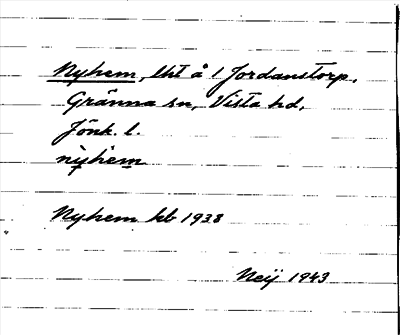 Nyhem, lht å 1 Jordanstorp,
Gränna sn, Vista hd,
Jönk. l.
nỳhèm
Nyhem kb 1938
Neij 1943